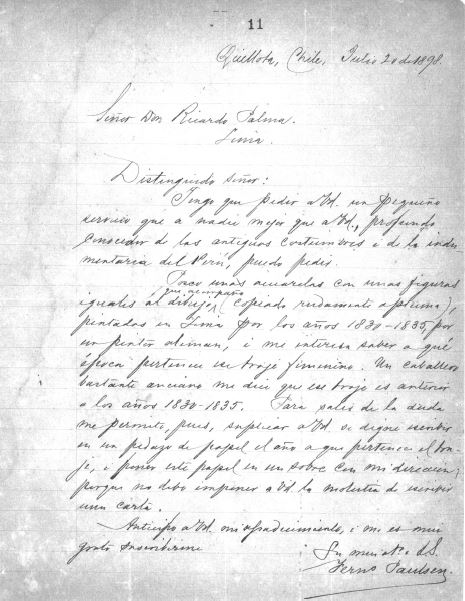 11
Quillota, Chile, Julio 20 de 1898.
Señor Don Ricardo Palma.
Lima.
Distinguido Señor:
Tengo que pedir a Vd. un pequeño
servicio que a nadie mejor que a Vd., profundo
conocedor de las antiguas costumbres i de la indu-
mentaria del Perú, puedo pedir.
Poseo unas acuarelas con unas figuras
que acompaño
iguales al dibujo (copiado rudamente a pluma),
pintadas en Lima por los años 1830-1835, por
un pintor aleman, i me interesa saber a qué
época pertenece ese traje feminino. Un caballero
bastante anciano me dice que ese traje es anterior
a los años 1830-1835. Para salir de la duda
me permito, pues, suplicar a Vd. se digne escribir
en un pedazo de papel el año a que pertenece el tra-
je, i poner este papel en un sobre con mi direccion;
porque no debo imponer a Vd la molestia de escribir
una carta.
Anticipo a Vd. mi agradecimiento, i me es mui
grato suscribirme
Su mui Atto. i S.S.
Ferno Paulsen.